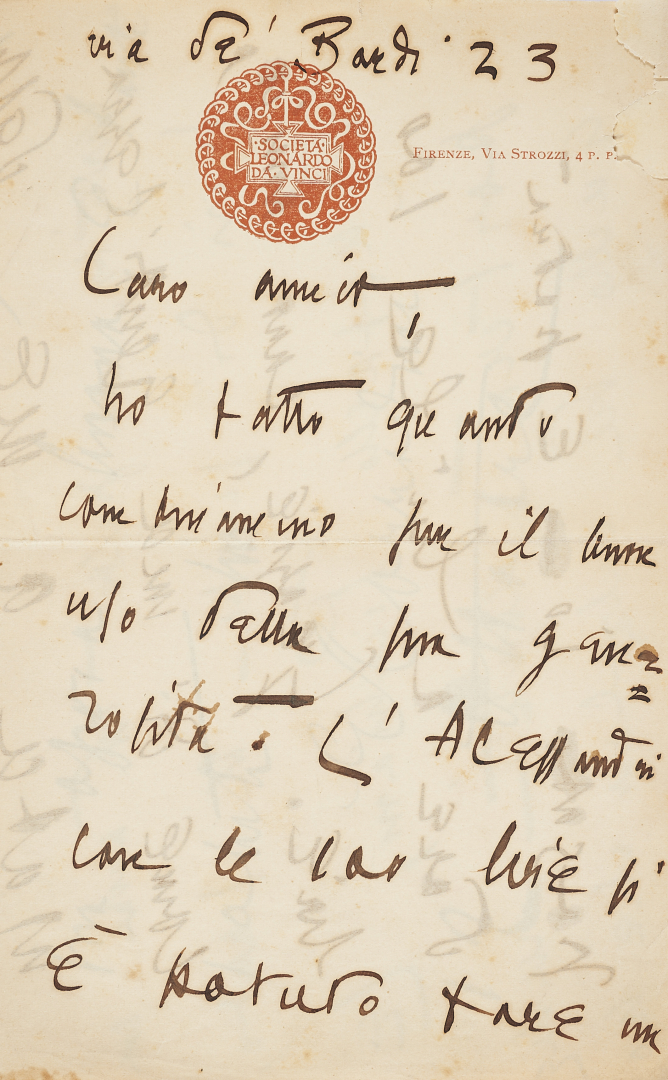 via de' Bardi 23
· SOCIETÀ ·
LEONARDO
DA · VINCI
FIRENZE, VIA STROZZI, 4 P. P.
Caro amico,
ho fatto quando
combinammo per il buon
uso della sua gene=
rosità. L'Alessandri
con le 100 lire si
è potuto fare un